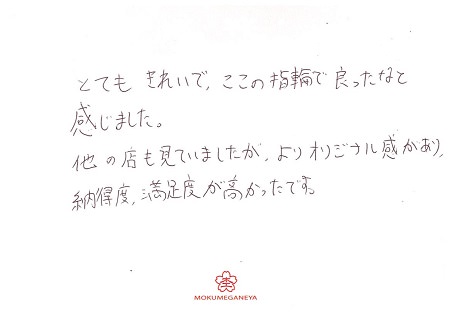 とても きれいで、ここの指輪で良ったなと
感じました。
他の店も見ていましたが、よりオリジナル感があり、
納得度、満足度が高かったです。
MOKUMEGANEYA